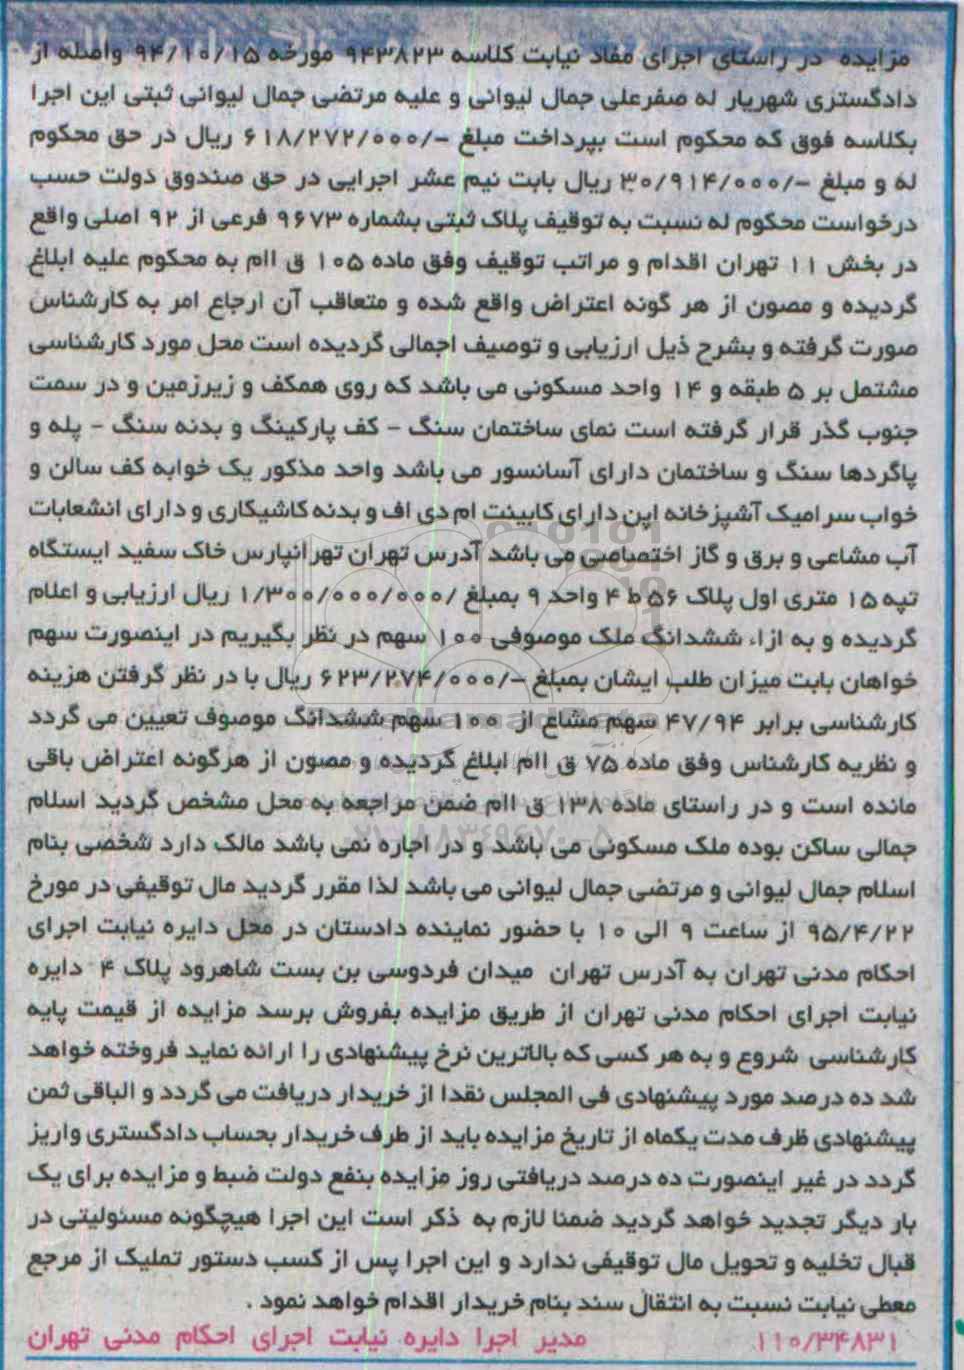 مزایده در راستای اجرای مفاد نیابت کلاسه ۹۴۳۸۲۳ مورخه ۹۴/۱۰/۱۵ واصله از
دادگستری شهریار له صفرعلی جمال لیوانی و علیه مرتضی جمال لیوانی ثبتی این اجرا
بکلاسه فوق که محکوم است بپرداخت مبلغ -/۶۱۸/۲۷۲/۰۰۰ ریال در حق محکوم
له و مبلغ -/۳۰/۹۱۴/۰۰۰ ریال بابت نیم عشر اجرایی در حق صندوق دولت حسب
درخواست محکوم له نسبت به توقیف پلاک ثبتی بشماره ۹۶۷۳ فرعی از ۹۲ اصلی واقع
در بخش ۱۱ تهران اقدام و مراتب توقیف وفق ماده ۱۰۵ ق اام به محکوم علیه ابلاغ
گردیده و مصون از هر گونه اعتراض واقع شده و متعاقب آن ارجاع امر به کارشناس
صورت گرفته و بشرح ذیل ارزیابی و توصیف اجمالی گردیده است محل مورد کارشناسی
مشتمل بر ۵ طبقه و ۱۴ واحد مسکونی می باشد که روی همکف و زیرزمین و در سمت
جنوب گذر قرار گرفته است نمای ساختمان سنگ - کف پارکینگ و بدنه سنگ - پله و
پاگردها سنگ و ساختمان دارای آسانسور می باشد واحد مذکور یک خوابه کف سالن و
خواب سرامیک آشپزخانه اپن دارای کابینت ام دی اف و بدنه کاشیکاری و دارای انشعابات
آب مشاعی و برق و گاز اختصاصی می باشد آدرس تهران تهرانپارس خاک سفید ایستگاه
تپه ۱۵ متری اول پلاک ۵۶ ط ۴ واحد ۹ بمبلغ /۱/۳۰۰/۰۰۰/۰۰۰ ریال ارزیابی و اعلام
گردیده و به ازاء ششدانگ ملک موصوفی ۱۰۰ سهم در نظر بگیریم در اینصورت سهم
خواهان بابت میزان طلب ایشان بمبلغ -/۶۲۳/۲۷۴/۰۰۰ ریال با در نظر گرفتن هزینه
کارشناسی برابر ۴۷/۹۴ سهم مشاع از ۱۰۰ سهم ششدانگ موصوف تعیین می گردد
و نظریه کارشناس وفق ماده ۷۵ ق اام ابلاغ گردیده و مصون از هرگونه اعتراض باقی
مانده است و در راستای ماده ۱۳۸ ق اام ضمن مراجعه به محل مشخص گردید اسلام
جمالی ساکن بوده ملک مسکونی می باشد و در اجاره نمی باشد مالک دارد شخصی بنام
اسلام جمال لیوانی و مرتضی جمال لیوانی می باشد لذا مقرر گردید مال توقیفی در مورخ
۹۵/۴/۲۲ از ساعت ۹ الی ۱۰ با حضور نماینده دادستان در محل دایره نیابت اجرای
احکام مدنی تهران به آدرس تهران میدان فردوسی بن بست شاهرود پلاک ۴ دایره
نیابت اجرای احکام مدنی تهران از طریق مزایده بفروش برسد مزایده از قیمت پایه
کارشناسی شروع و به هر کسی که بالاترین نرخ پیشنهادی را ارائه نماید فروخته خواهد
شد ده درصد مورد پیشنهادی فی المجلس نقدا از خریدار دریافت می گردد و الباقی ثمن
پیشنهادی ظرف مدت یکماه از تاریخ مزایده باید از طرف خریدار بحساب دادگستری واریز
گردد در غیر اینصورت ده درصد دریافتی روز مزایده بنفع دولت ضبط و مزایده برای یک
بار دیگر تجدید خواهد گردید ضمنا لازم به ذکر است این اجرا هیچگونه مسئولیتی در
قبال تخلیه و تحویل مال توقیفی ندارد و این اجرا پس از کسب دستور تملیک از مرجع
معطی نیابت نسبت به انتقال سند بنام خریدار اقدام خواهد نمود .
۱۱۰/۳۴۸۳۱ مدیر اجرا دایره نیابت اجرای احکام مدنی تهران